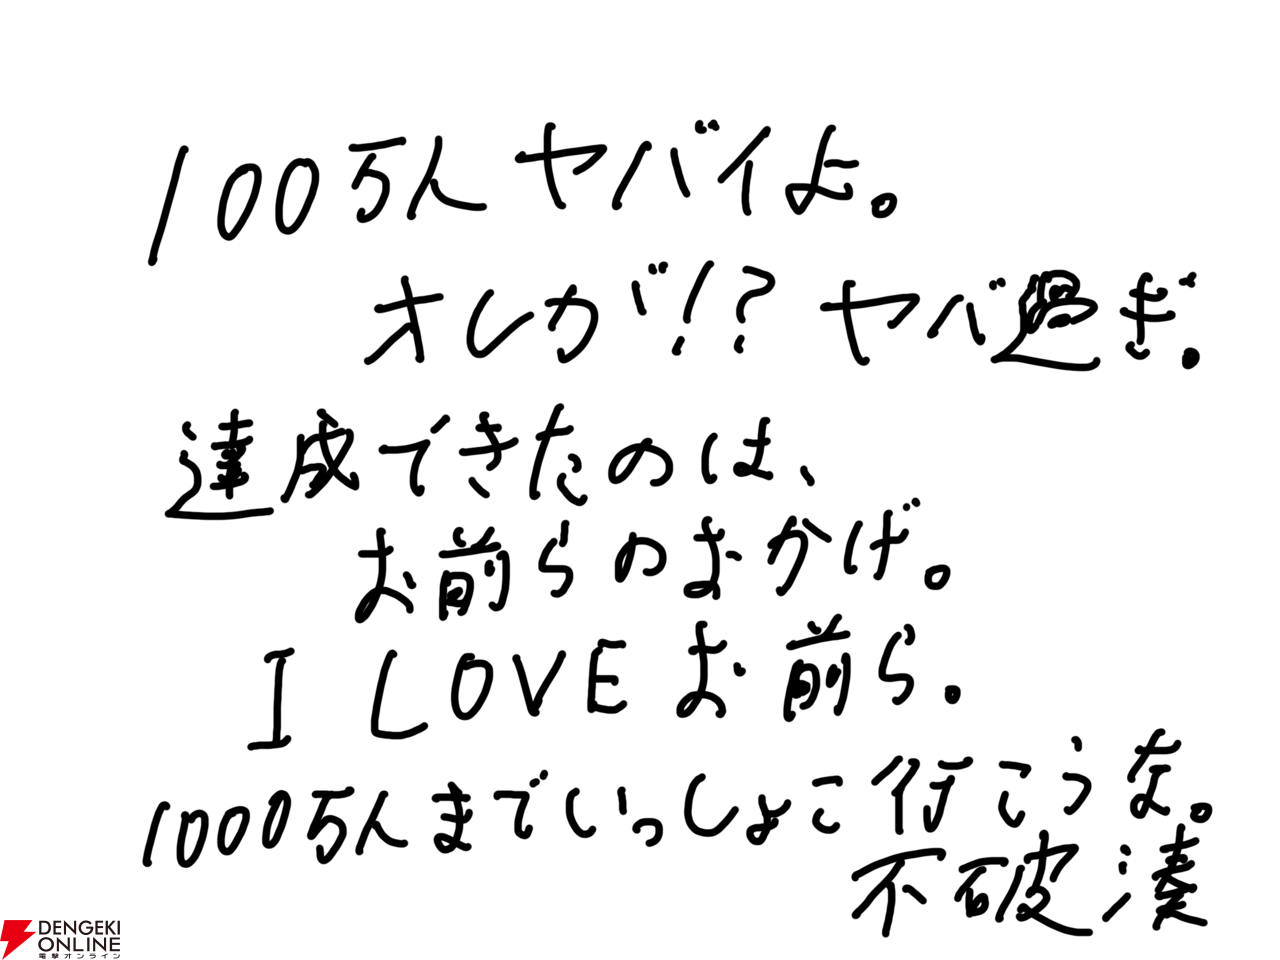 100万人ヤバイよ。
オレが!?ヤバ過ぎ。
達成できたのは、
お前らのおかげ。
I LOVEお前ら。
1000万人までいっしょこ行こうな。
不破湊
DENGEKI
ONLINE
電撃オンライン